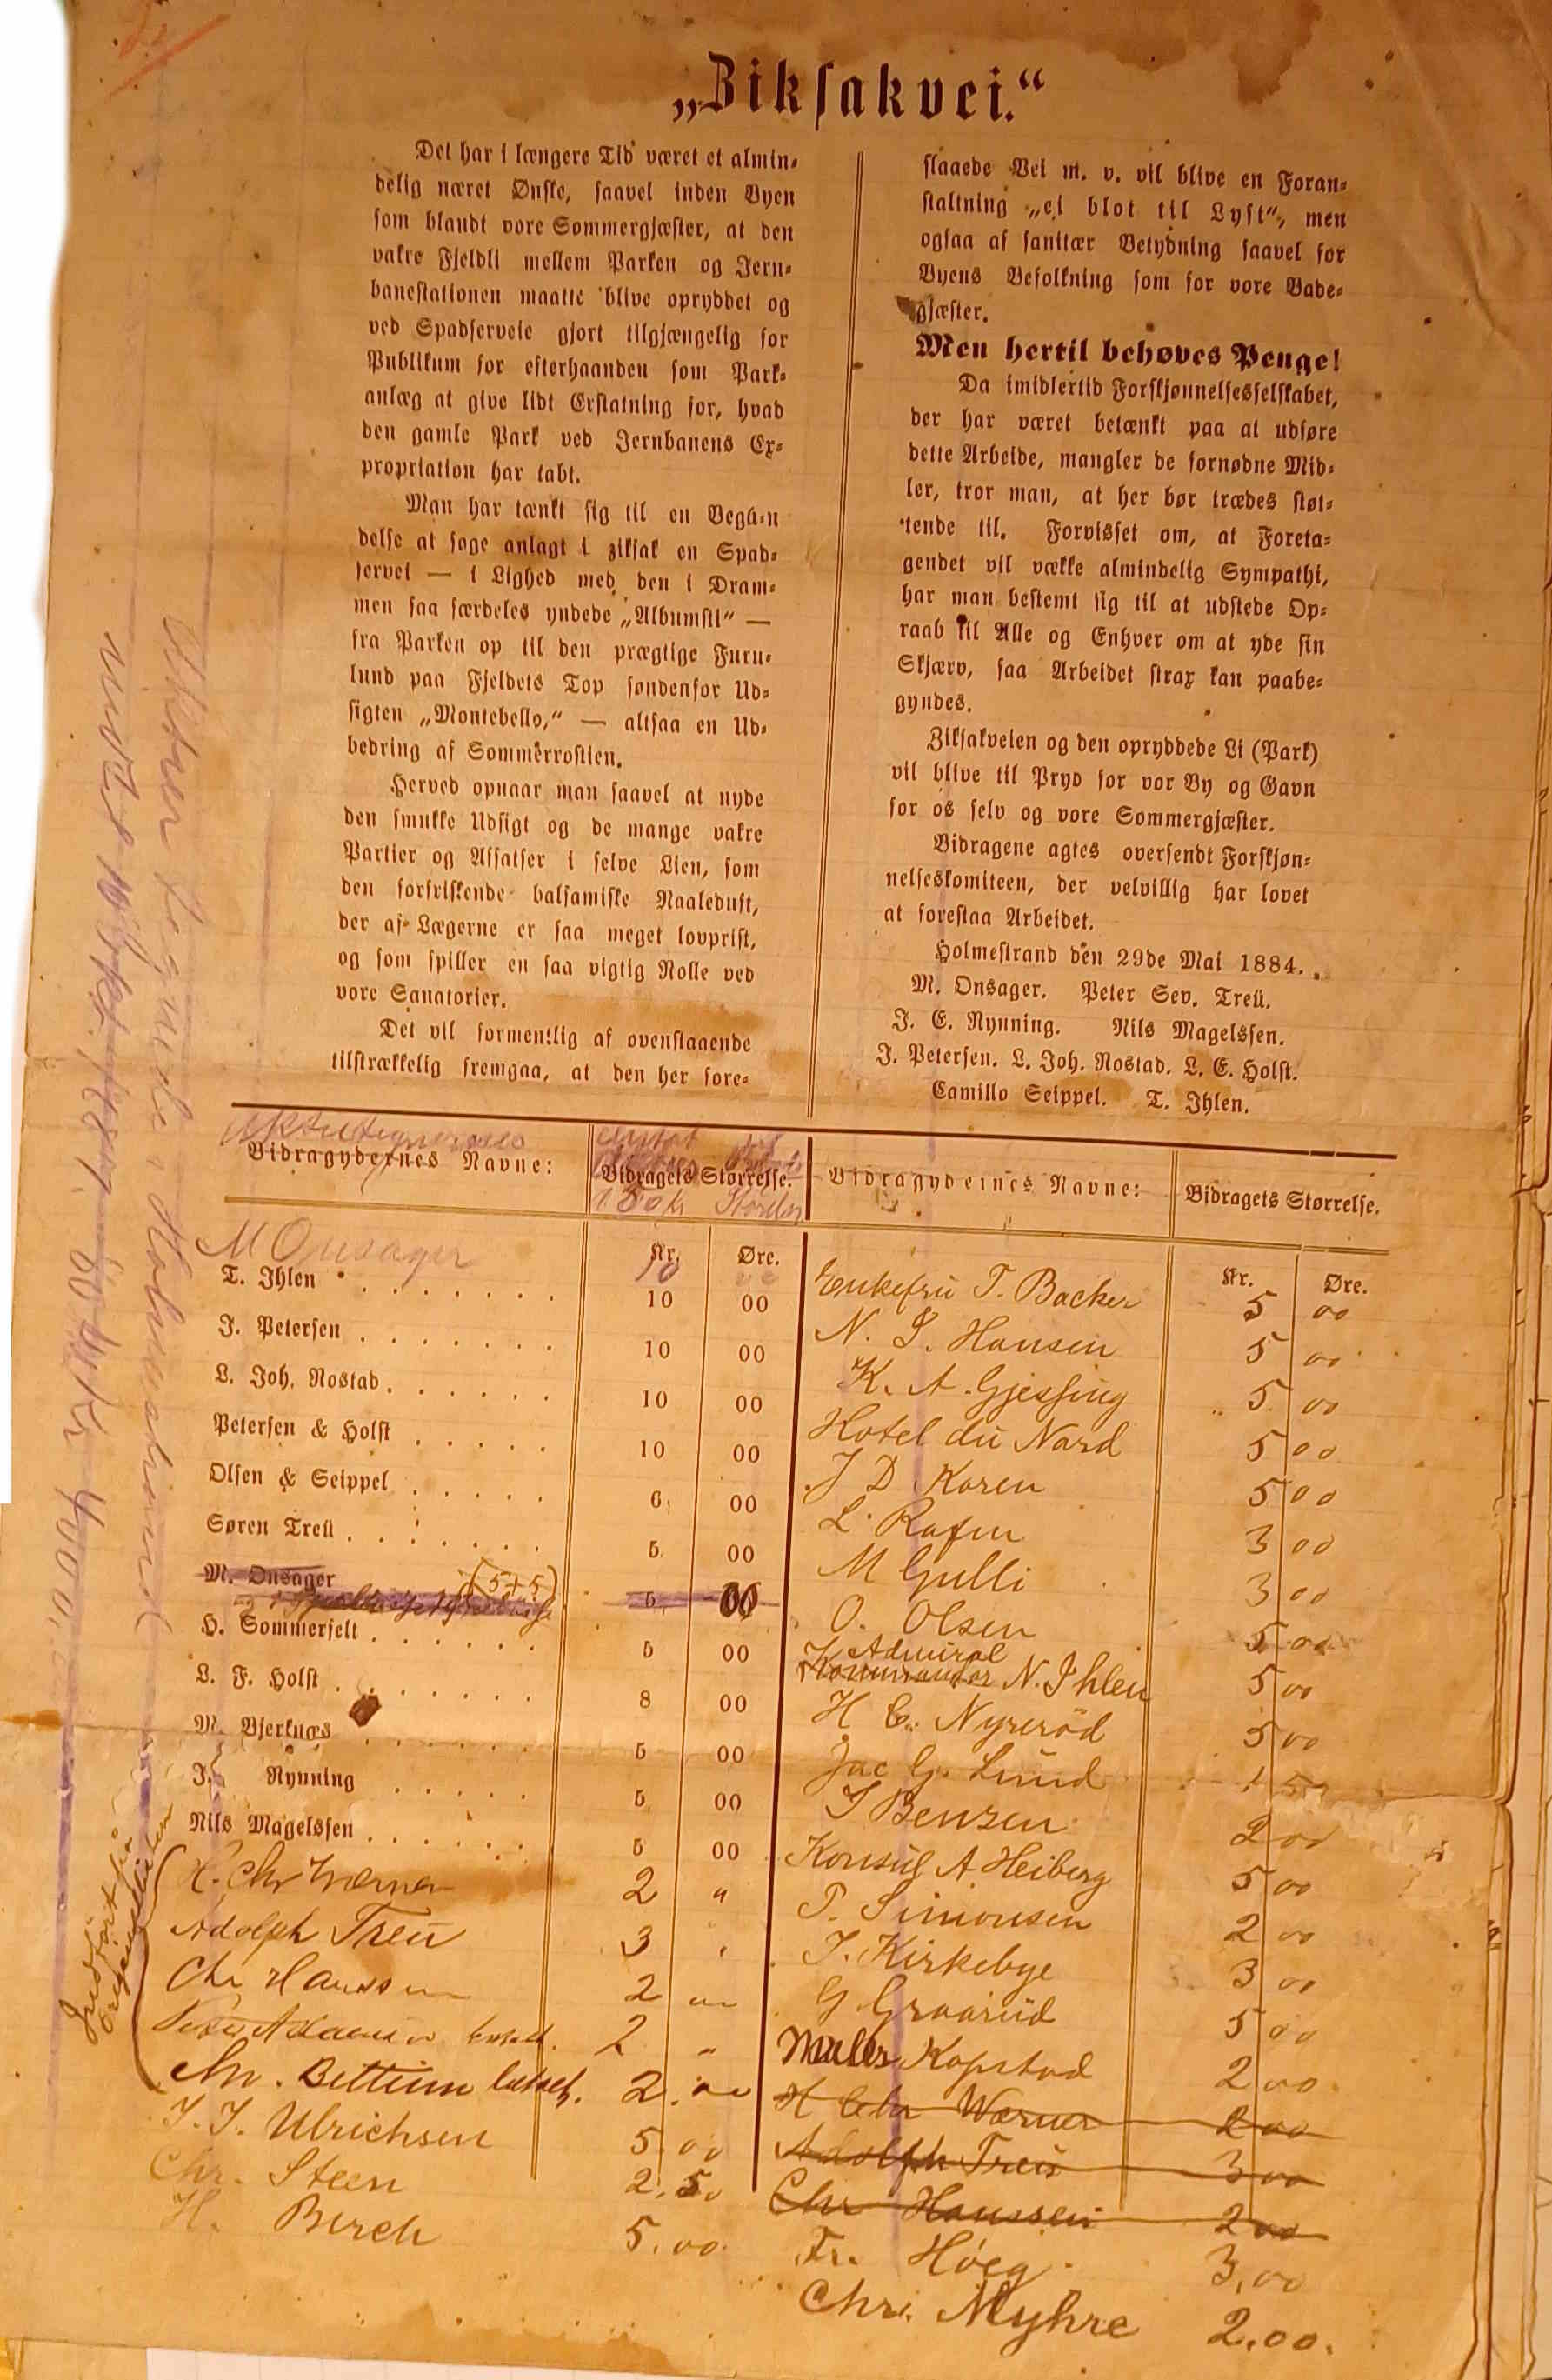 „Ziksakvei.“
Det har i længere Tid været et almin-
delig næret Ønske, saavel inden Byen
som blandt vore Sommergjæster, at den
vakre Fjeldli mellem Parken og Jern-
banestationen maatte blive opryddet og
ved Spadserveie gjort tilgjængelig for
Publikum for efterhaanden som Park-
anlæg at give lidt Erstatning for, hvad
den gamle Park ved Jernbanens Ex-
propriation har tabt.
Man har tænkt sig til en Begyn
delse at søge anlagt i ziksak en Spad-
servei — i Lighed med den i Dram-
men saa særdeles yndede „Albumsti“ —
fra Parken op til den prægtige Furu-
lund paa Fjeldets Top søndenfor Ud-
sigten „Montebello,“ — altsaa en Ud-
bedring af Sommerrostien.
Herved opnaar man saavel at nyde
den smukke Udsigt og de mange vakre
Partier og Afsatser i selve Lien, som
den forfriskende balsamiske Naaleduft,
der af Lægerne er saa meget lovprist,
og som spiller en saa vigtig Rolle ved
vore Sanatorier.
Det vil formentlig af ovenstaaende
tilstrækkelig fremgaa, at den her fore-
slaaede Vei m. v. vil blive en Foran-
staltning „ei blot til Lyst“, men
ogsaa af sanitær Betydning saavel for
Byens Befolkning som for vore Bade-
gjæster.
Men hertil behøves Penge!
Da imidlertid Forskjønnelsesselskabet,
der har været betænkt paa at udføre
dette Arbeide, mangler de fornødne Mid-
ler, tror man, at her bør trædes støt-
tende til. Forvisset om, at Foreta-
gendet vil vække almindelig Sympathi,
har man bestemt sig til at udstede Op-
raab til Alle og Enhver om at yde sin
Skjærv, saa Arbeidet strax kan paabe-
gyndes.
Ziksakveien og den opryddede Li (Park)
vil blive til Pryd for vor By og Gavn
for os selv og vore Sommergjæster.
Bidragene agtes oversendt Forskjøn-
nelseskomiteen, der velvillig har lovet
at forestaa Arbeidet.
Holmestrand den 29de Mai 1884.
M. Onsager. Peter Sev. Treü.
J. E. Rynning. Nils Magelssen.
J. Petersen. L. Joh. Rostad. L. E. Holst.
Camillo Seippel. T. Ihlen.
Bidragydernes Navne: Bidragets Størrelse. Bidragydernes Navne: Bidragets Størrelse.
Kr. Øre. Kr. Øre.
M Onsager 10
T. Ihlen 10 00
J. Petersen 10 00
L. Joh. Rostad 10 00
Petersen & Holst 10 00
Olsen & Seippel 6 00
Søren Treü 5 00
M. Onsager (5+5) 5 00
H. Sommerfelt 5 00
L. F. Holst 8 00
M. Bjerknæs 5 00
J. Rynning 5 00
Nils Magelssen 5 00
H. Chr Wærner 2 "
Adolph Treü 3 "
Chr Hanssen 2 00
2 "
Chr. Bettum betalt. 2.00
J. J. Ulrichsen 5.00
Chr. Steen 2.50
H. Birch 5.00
Enkefrü T. Backer 5 00
N. S. Hansen 5 00
K. A. Gjessing 5 00
Hotel dü Nord 5 00
J D Koren 5 00
L. Rafen 3 00
M Gulli 3 00
O. Olsen 5 00
Admiral
Kommandør N. Ihlen 5 00
H C. Nyrerød 5 00
Jac G. Lund 1 50
J Benzen 2 00
Konsül A. Heiberg 5 00
P. Simonsen 2 00
J. Kirkebye 3 00
G Graarüd 5 00
Møller Kopstad 2 00
H Chr Wærner 2 00
Adolph Treü 3 00
Chr Hanssen 2 00
Fr. Höeg 3,00
Chr. Myhre 2.00.